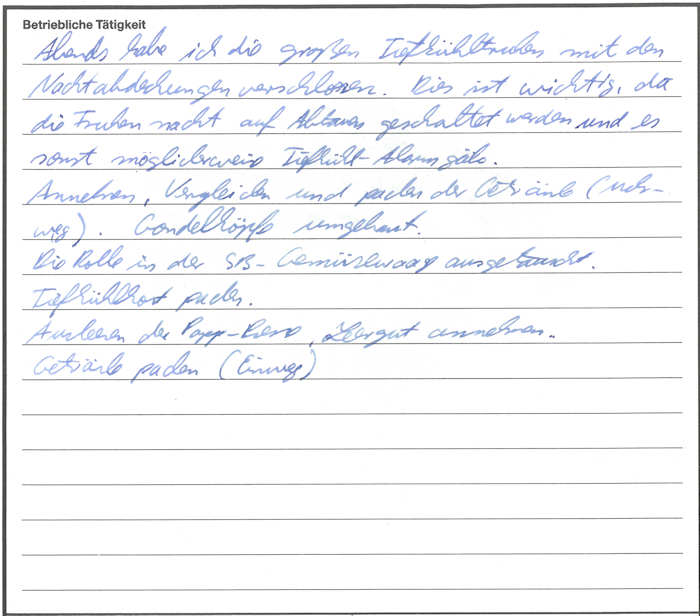 Betriebliche Tätigkeit
Abends habe ich die großen Tiefkühltruhen mit den
Nachtabdeckungen verschlossen. Dies ist wichtig, da
die Truhen nacht auf Abtauen geschaltet werden und es
sonst möglicherweise Tiefkühl-Alarm gäbe.
Annehmen, Vergleichen und packen der Getränke (Meh-
weg). Gondelköpfe umgebaut.
Die Rolle in der SB-Gemüsewaage ausgetauscht.
Tiefkühlkost packen.
Ausleeren der Papp-Presse, Leergut annehmen.
Getränke packen (Einweg)